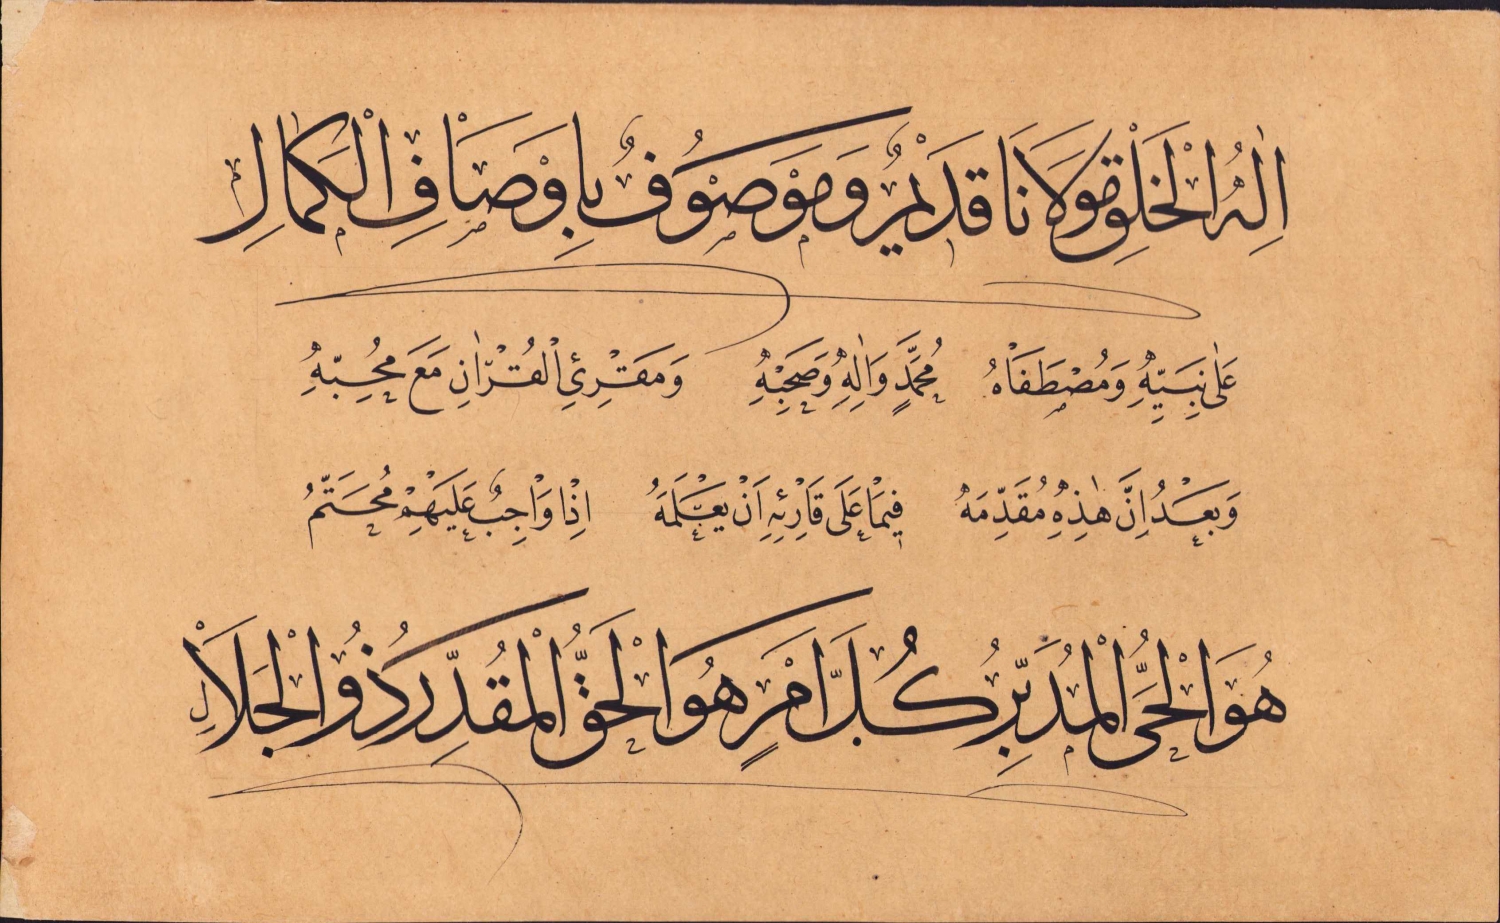 اِلٰهُ الْخَلْقِ مَوْلَانَا قَدِيْمٌ وَمَوْصُوْفٌ بِاَوْصَافِ الْكَمَالِ
عَلٰى نَبِيِّهِ وَمُصْطَفَاهُ مُحَمَّدٍ وَاٰلِهِ وَصَحْبِهِ وَمُقْرِئِ الْقُرْاٰنِ مَعَ مُحِبِّهِ
وَبَعْدُ اِنَّ هٰذِهِ مُقَدِّمَهْ فِيمَا عَلَى قَارِئِهِ اَنْ يَعْلَمَهُ اِذًا وَاجِبٌ عَلَيْهِمْ مُحَتَّمُ
هُوَ الْحَيُّ الْمُدَبِّرُ كُلَّ اَمْرٍ هُوَ الْحَقُّ الْمُقَدِّرُ ذُو الْجَلَالِ